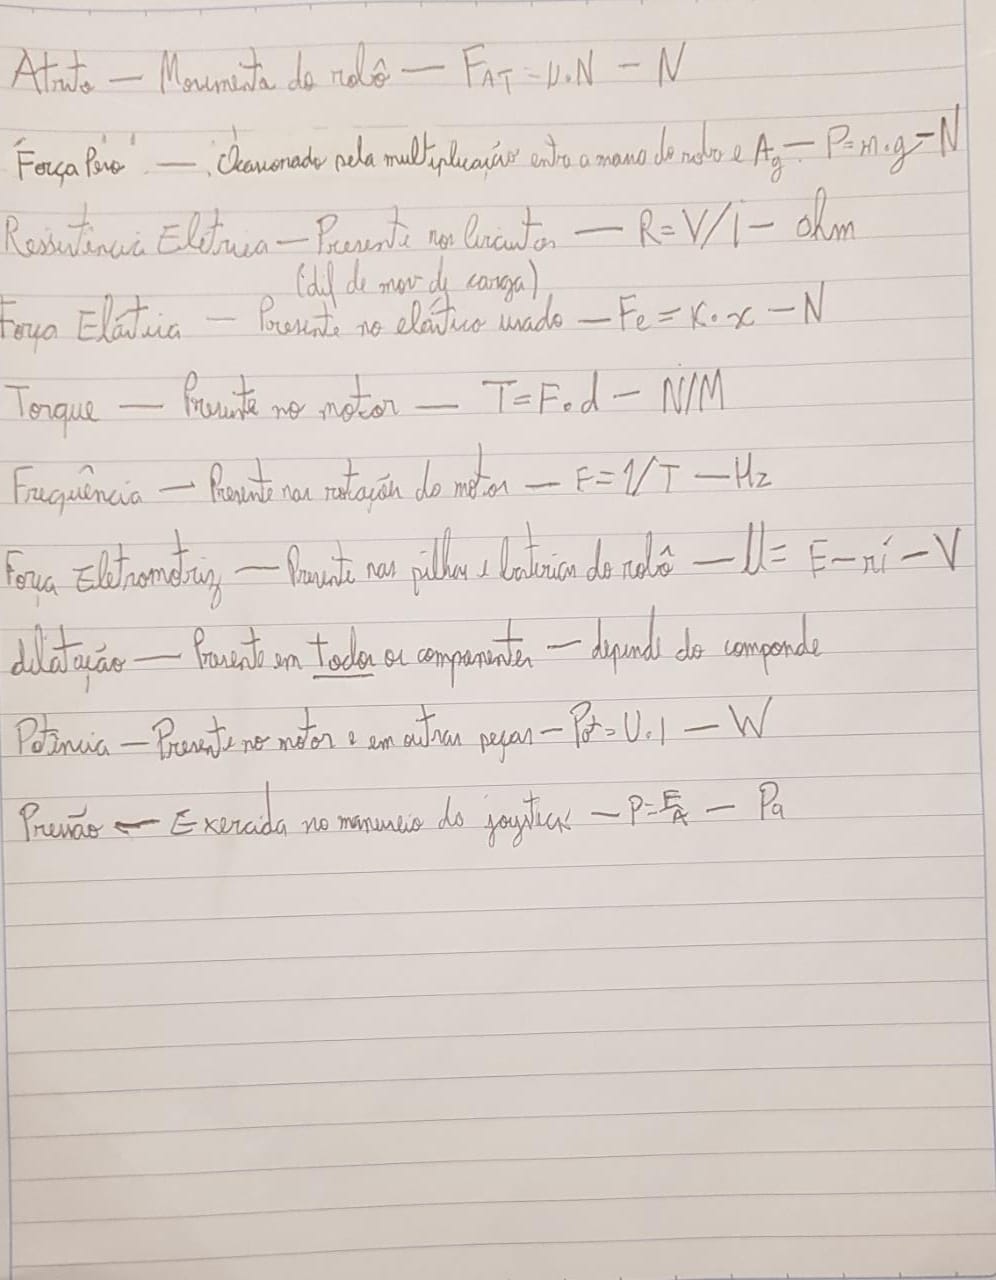 Atrito — Movimento do robô — FAT = U.N — N
Força Peso — Ocasionado pela multiplicação entre a massa do robo e Ag — P=m.g — N
Ressistência Elétrica — Presente nos circuitos — R=V/i — ohm
(dif de mov de carga)
Força Elástica — Presente no elástico usado — Fe = K.x — N
Torque — Presente no motor — T=F.d — N/M
Frequência — Presente nas rotação do motor — F=1/T — Hz
Força Eletromotriz — Presente nas pilhas e baterias do robô — U= E-ri — V
dilatação — Presente em todos os componentes — depende do componde
Potência — Presente no motor e em outras peças — Pot=U.I — W
Pressão — Exercida no manuseio do joystick — P=F/A — Pa